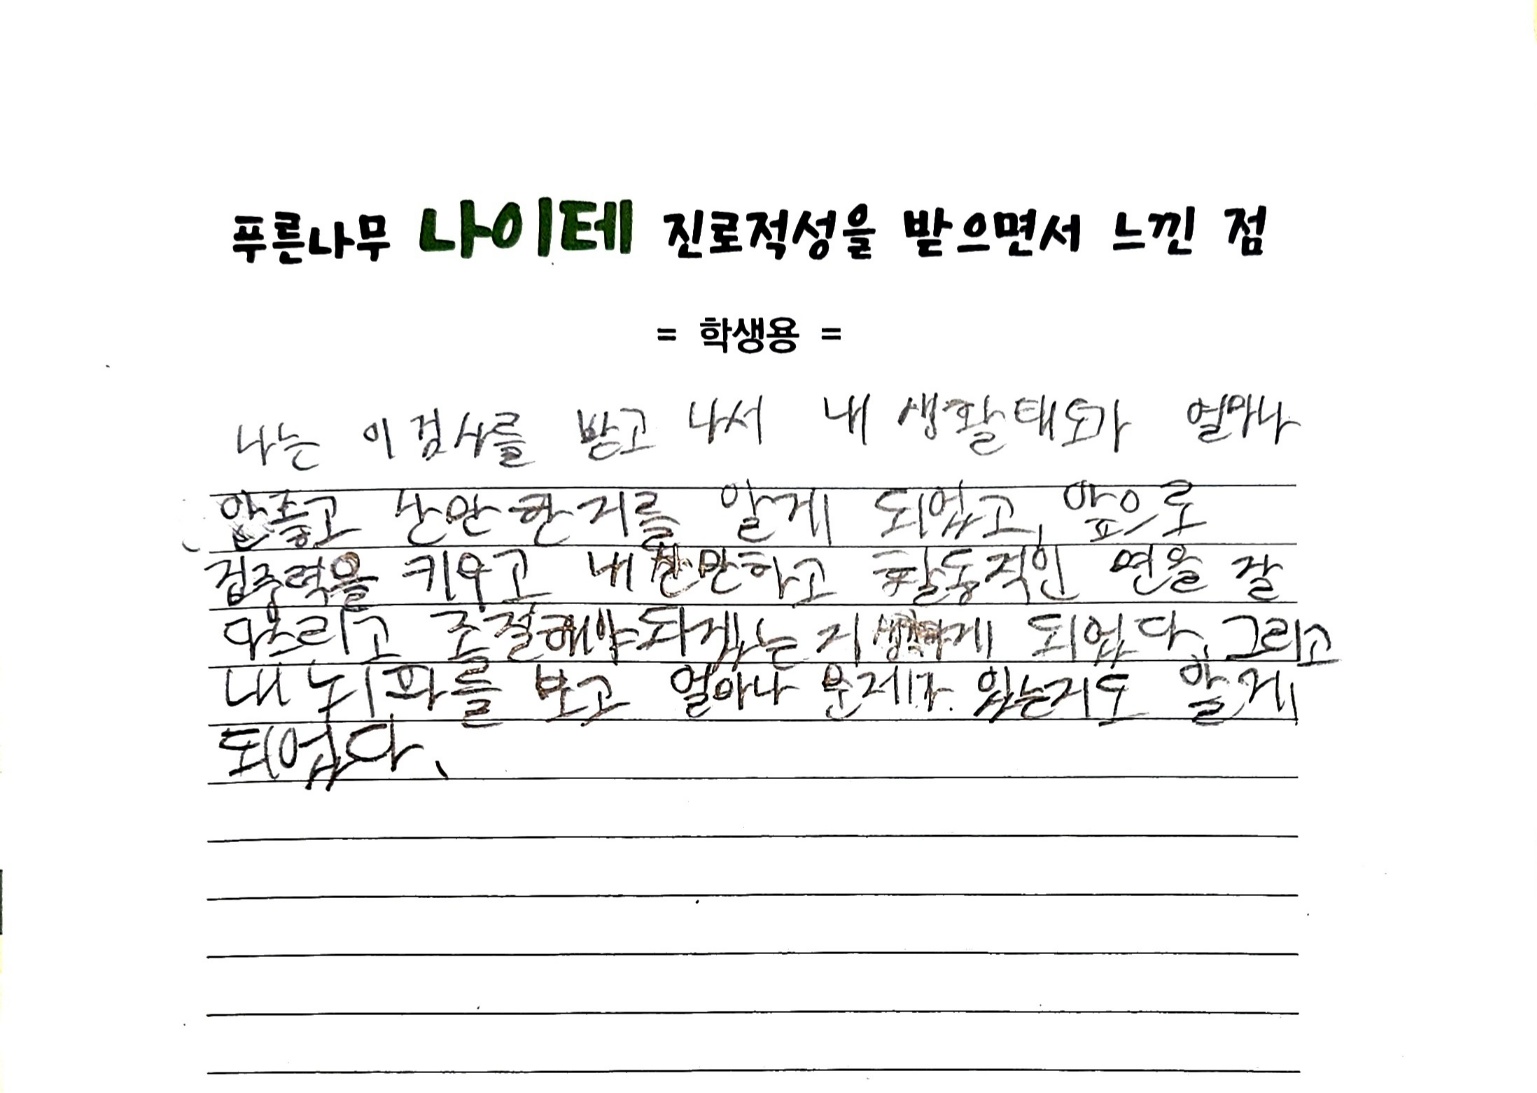 푸른나무 나이테 진로적성을 받으면서 느낀 점
= 학생용 =
나는 이 검사를 받고 나서 내 생활태도가 얼마나
안좋고 산만한지를 알게 되었고, 앞으로
집중력을 키우고 내 산만하고 활동적인 면을 잘
다스리고 조절해야되겠는지 생각하게 되었다. 그리고
내 뇌파를 보고 얼마나 문제가 있는지도 알게
되었다.